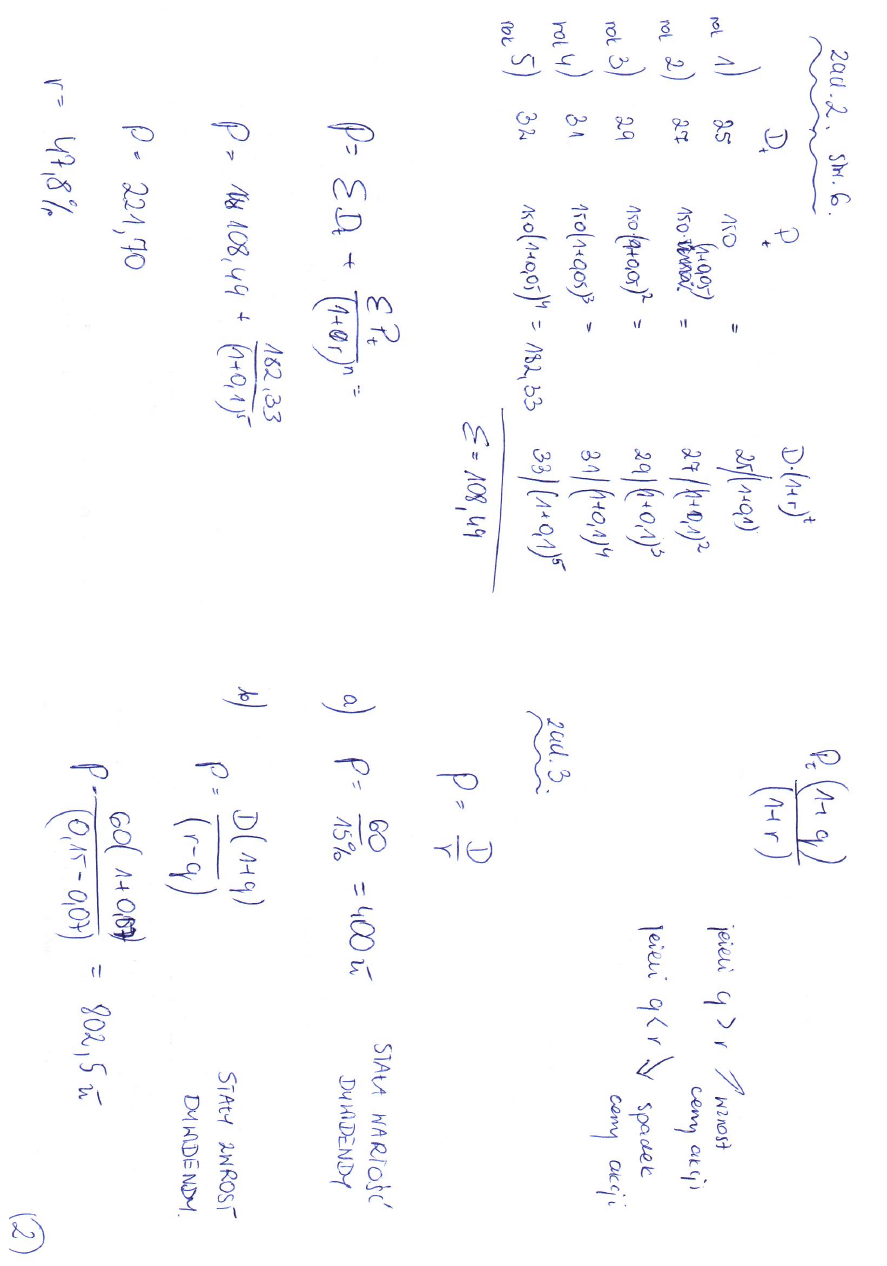 zad. 2. str. 6.
Dt Pt D·(1+r)^t
rok 1) 25 150 = 25/(1+0,1)
rok 2) 27 150·(1+0,05) = 27/(1+0,1)²
rok 3) 29 150·(1+0,05)² = 29/(1+0,1)³
rok 4) 31 150(1+0,05)³ = 31/(1+0,1)⁴
rok 5) 32 150(1+0,05)⁴ = 182,33 33/(1+0,1)⁵
Σ = 108,49
P = ΣDt + ΣPt/(1+r)ⁿ =
P = 108,49 + 182,33/(1+0,1)⁵
P = 221,70
r = 47,8%
Pt(1+q)/(1+r)
jeżeli q > r ↗ wzrost
ceny akcji
jeżeli q < r ↘ spadek
ceny akcji
zad. 3.
P = D/r
a) P = 60/15% = 400 zł STAŁA WARTOŚĆ
DYWIDENDY
b) P = D(1+q)/(r-q) STAŁY WZROST
DYWIDENDY.
P = 60(1+0,07)/(0,15-0,07) = 802,5 zł
(2)